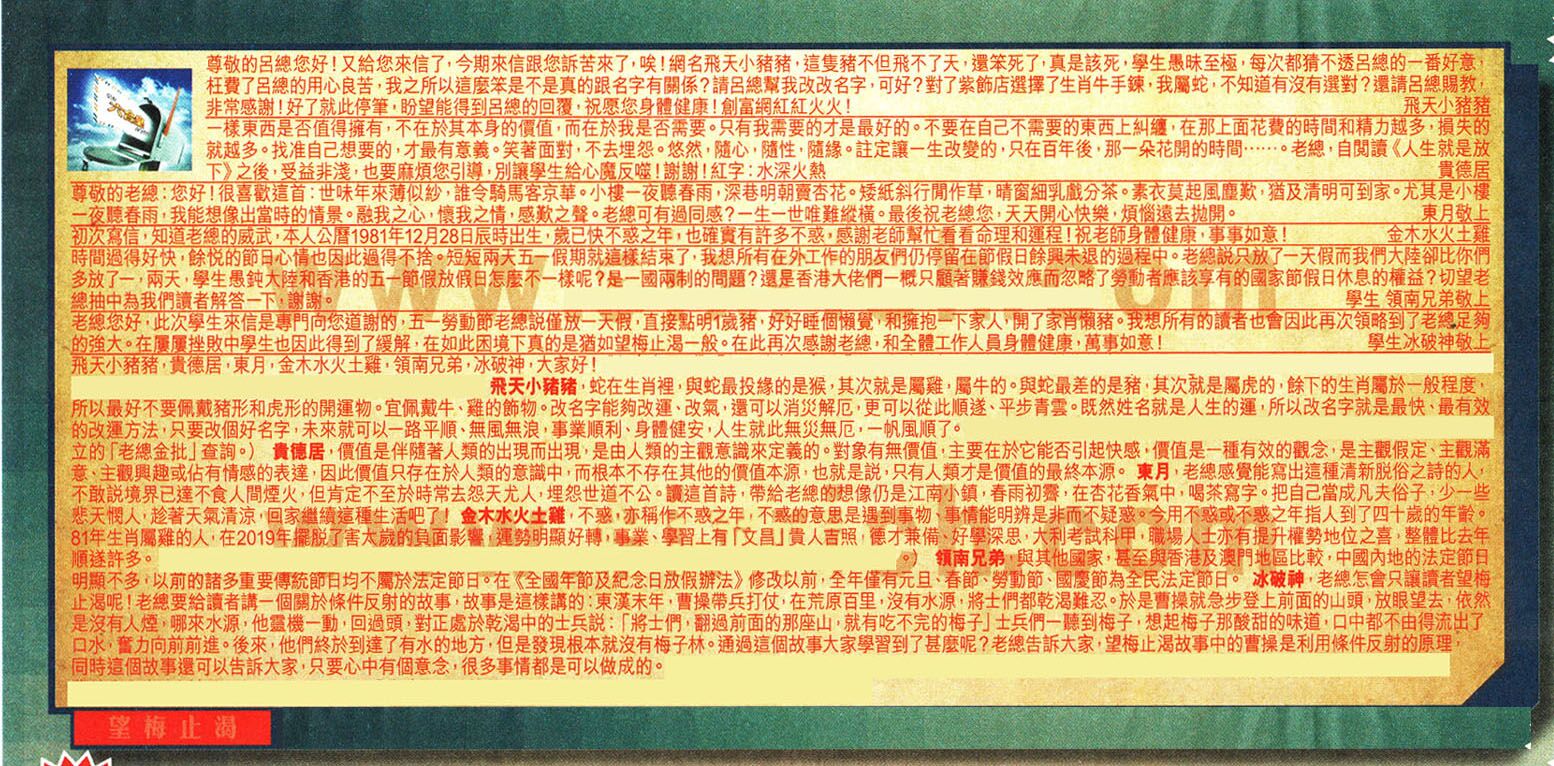 尊敬的呂總您好！又給您來信了，今期來信跟您訴苦來了，唉！網名飛天小豬豬，這隻豬不但飛不了天，還笨死了，真是該死，學生愚昧至極，每次都猜不透呂總的一番好意，
枉費了呂總的用心良苦，我之所以這麼笨是不是真的跟名字有關係？請呂總幫我改改名字，可好？對了紫飾店選擇了生肖牛手鍊，我屬蛇，不知道有沒有選對？還請呂總賜教，
非常感謝！好了就此停筆，盼望能得到呂總的回覆，祝愿您身體健康！創富網紅紅火火！ 飛天小豬豬
一樣東西是否值得擁有，不在於其本身的價值，而在於我是否需要。只有我需要的才是最好的。不要在自己不需要的東西上糾纏，在那上面花費的時間和精力越多，損失的
就越多。找准自己想要的，才最有意義。笑著面對，不去埋怨。悠然，隨心，隨性，隨緣。註定讓一生改變的，只在百年後，那一朵花開的時間……。老總，自閱讀《人生就是放
下》之後，受益非淺，也要麻煩您引導，別讓學生給心魔反噬！謝謝！紅字：水深火熱 貴德居
尊敬的老總：您好！很喜歡這首：世味年來薄似紗，誰令騎馬客京華。小樓一夜聽春雨，深巷明朝賣杏花。矮紙斜行閒作草，晴窗細乳戲分茶。素衣莫起風塵歎，猶及清明可到家。尤其是小樓
一夜聽春雨，我能想像出當時的情景。融我之心，懷我之情，感歎之聲。老總可有過同感？一生一世唯難縱橫。最後祝老總您，天天開心快樂，煩惱遠去拋開。 東月敬上
初次寫信，知道老總的威武，本人公曆1981年12月28日辰時出生，歲已快不惑之年，也確實有許多不惑，感謝老師幫忙看看命理和運程！祝老師身體健康，事事如意！ 金木水火土雞
時間過得好快，餘悅的節日心情也因此過得不捨。短短兩天五一假期就這樣結束了，我想所有在外工作的朋友們仍停留在節假日餘興未退的過程中。老總說只放了一天假而我們大陸卻比你們
多放了一，兩天，學生愚鈍大陸和香港的五一節假放假日怎麼不一樣呢？是一國兩制的問題？還是香港大佬們一概只顧著賺錢效應而忽略了勞動者應該享有的國家節假日休息的權益？切望老
總抽中為我們讀者解答一下，謝謝。 學生 領南兄弟敬上
老總您好，此次學生來信是專門向您道謝的，五一勞動節老總說僅放一天假，直接點明1歲豬，好好睡個懶覺，和擁抱一下家人，開了家肖懶豬。我想所有的讀者也會因此再次領略到了老總足夠
的強大。在屢屢挫敗中學生也因此得到了緩解，在如此困境下真的是猶如望梅止渴一般。在此再次感謝老總，和全體工作人員身體健康，萬事如意！ 學生冰破神敬上
飛天小豬豬，貴德居，東月，金木水火土雞，領南兄弟，冰破神，大家好！
飛天小豬豬，蛇在生肖裡，與蛇最投緣的是猴，其次就是屬雞，屬牛的。與蛇最差的是豬，其次就是屬虎的，餘下的生肖屬於一般程度，
所以最好不要佩戴豬形和虎形的開運物。宜佩戴牛、雞的飾物。改名字能夠改運、改氣，還可以消災解厄，更可以從此順遂、平步青雲。既然姓名就是人生的運，所以改名字就是最快、最有效
的改運方法，只要改個好名字，未來就可以一路平順、無風無浪，事業順利、身體健安，人生就此無災無厄，一帆風順了。
立的「老總金批」查詢。） 貴德居，價值是伴隨著人類的出現而出現，是由人類的主觀意識來定義的。對象有無價值，主要在於它能否引起快感，價值是一種有效的觀念，是主觀假定、主觀滿
意、主觀興趣或佔有情感的表達，因此價值只存在於人類的意識中，而根本不存在其他的價值本源，也就是説，只有人類才是價值的最終本源。 東月，老總感覺能寫出這種清新脱俗之詩的人，
不敢説境界已達不食人間煙火，但肯定不至於時常去怨天尤人，埋怨世道不公。讀這首詩，帶給老總的想像仍是江南小鎮，春雨初霽，在杏花香氣中，喝茶寫字。把自己當成凡夫俗子，少一些
悲天憫人，趁著天氣清涼，回家繼續這種生活吧了！ 金木水火土雞，不惑，亦稱作不惑之年，不惑的意思是遇到事物、事情能明辨是非而不疑惑。今用不惑或不惑之年指人到了四十歲的年齡。
81年生肖屬雞的人，在2019年擺脫了害太歲的負面影響，運勢明顯好轉，事業、學習上有「文昌」貴人吉照，德才兼備、好學深思，大利考試科甲，職場人士亦有提升權勢地位之喜，整體比去年
順遂許多。 。） 領南兄弟，與其他國家，甚至與香港及澳門地區比較，中國內地的法定節日
明顯不多，以前的諸多重要傳統節日均不屬於法定節日。在《全國年節及紀念日放假辦法》修改以前，全年僅有元旦、春節、勞動節、國慶節為全民法定節日。 冰破神，老總怎會只讓讀者望梅
止渴呢！老總要給讀者講一個關於條件反射的故事，故事是這樣講的：東漢末年，曹操帶兵打仗，在荒原百里，沒有水源，將士們都乾渴難忍。於是曹操就急步登上前面的山頭，放眼望去，依然
是沒有人煙，哪來水源，他靈機一動，回過頭，對正處於乾渴中的士兵説：「將士們，翻過前面的那座山，就有吃不完的梅子」士兵們一聽到梅子，想起梅子那酸甜的味道，口中都不由得流出了
口水，奮力向前前進。後來，他們終於到達了有水的地方，但是發現根本就沒有梅子林。通過這個故事大家學習到了甚麼呢？老總告訴大家，望梅止渴故事中的曹操是利用條件反射的原理，
同時這個故事還可以告訴大家，只要心中有個意念，很多事情都是可以做成的。
望梅止渴